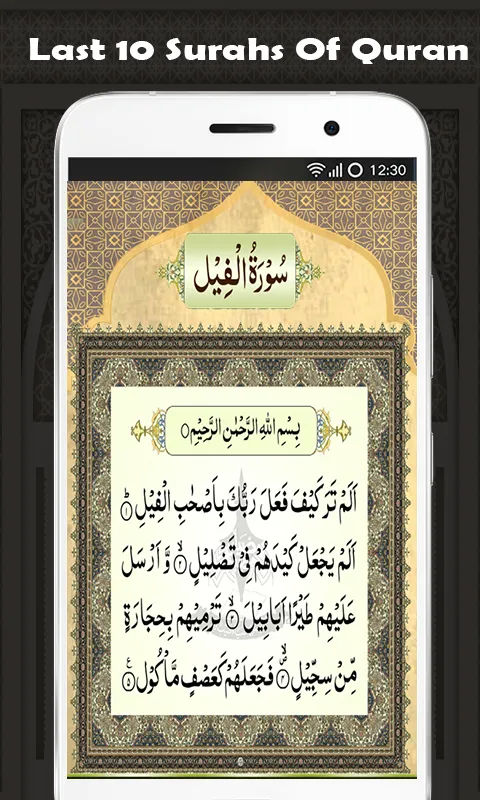 Last 10 Surahs Of Quran
12:30
سُوْرَةُ الْفِيْل
بِسْمِ اللهِ الرَّحْمٰنِ الرَّحِيْمِ○
اَلَمْ تَرَ كَيْفَ فَعَلَ رَبُّكَ بِاَصْحٰبِ الْفِيْلِ ؕ۝۱
اَلَمْ يَجْعَلْ كَيْدَهُمْ فِيْ تَضْلِيْلٍ ۙ۝۲ وَّ اَرْسَلَ
عَلَيْهِمْ طَيْرًا اَبَابِيْلَ ۙ۝۳ تَرْمِيْهِمْ بِحِجَارَةٍ
مِّنْ سِجِّيْلٍ ۙ۝۴ فَجَعَلَهُمْ كَعَصْفٍ مَّاْكُوْلٍ ۝۵